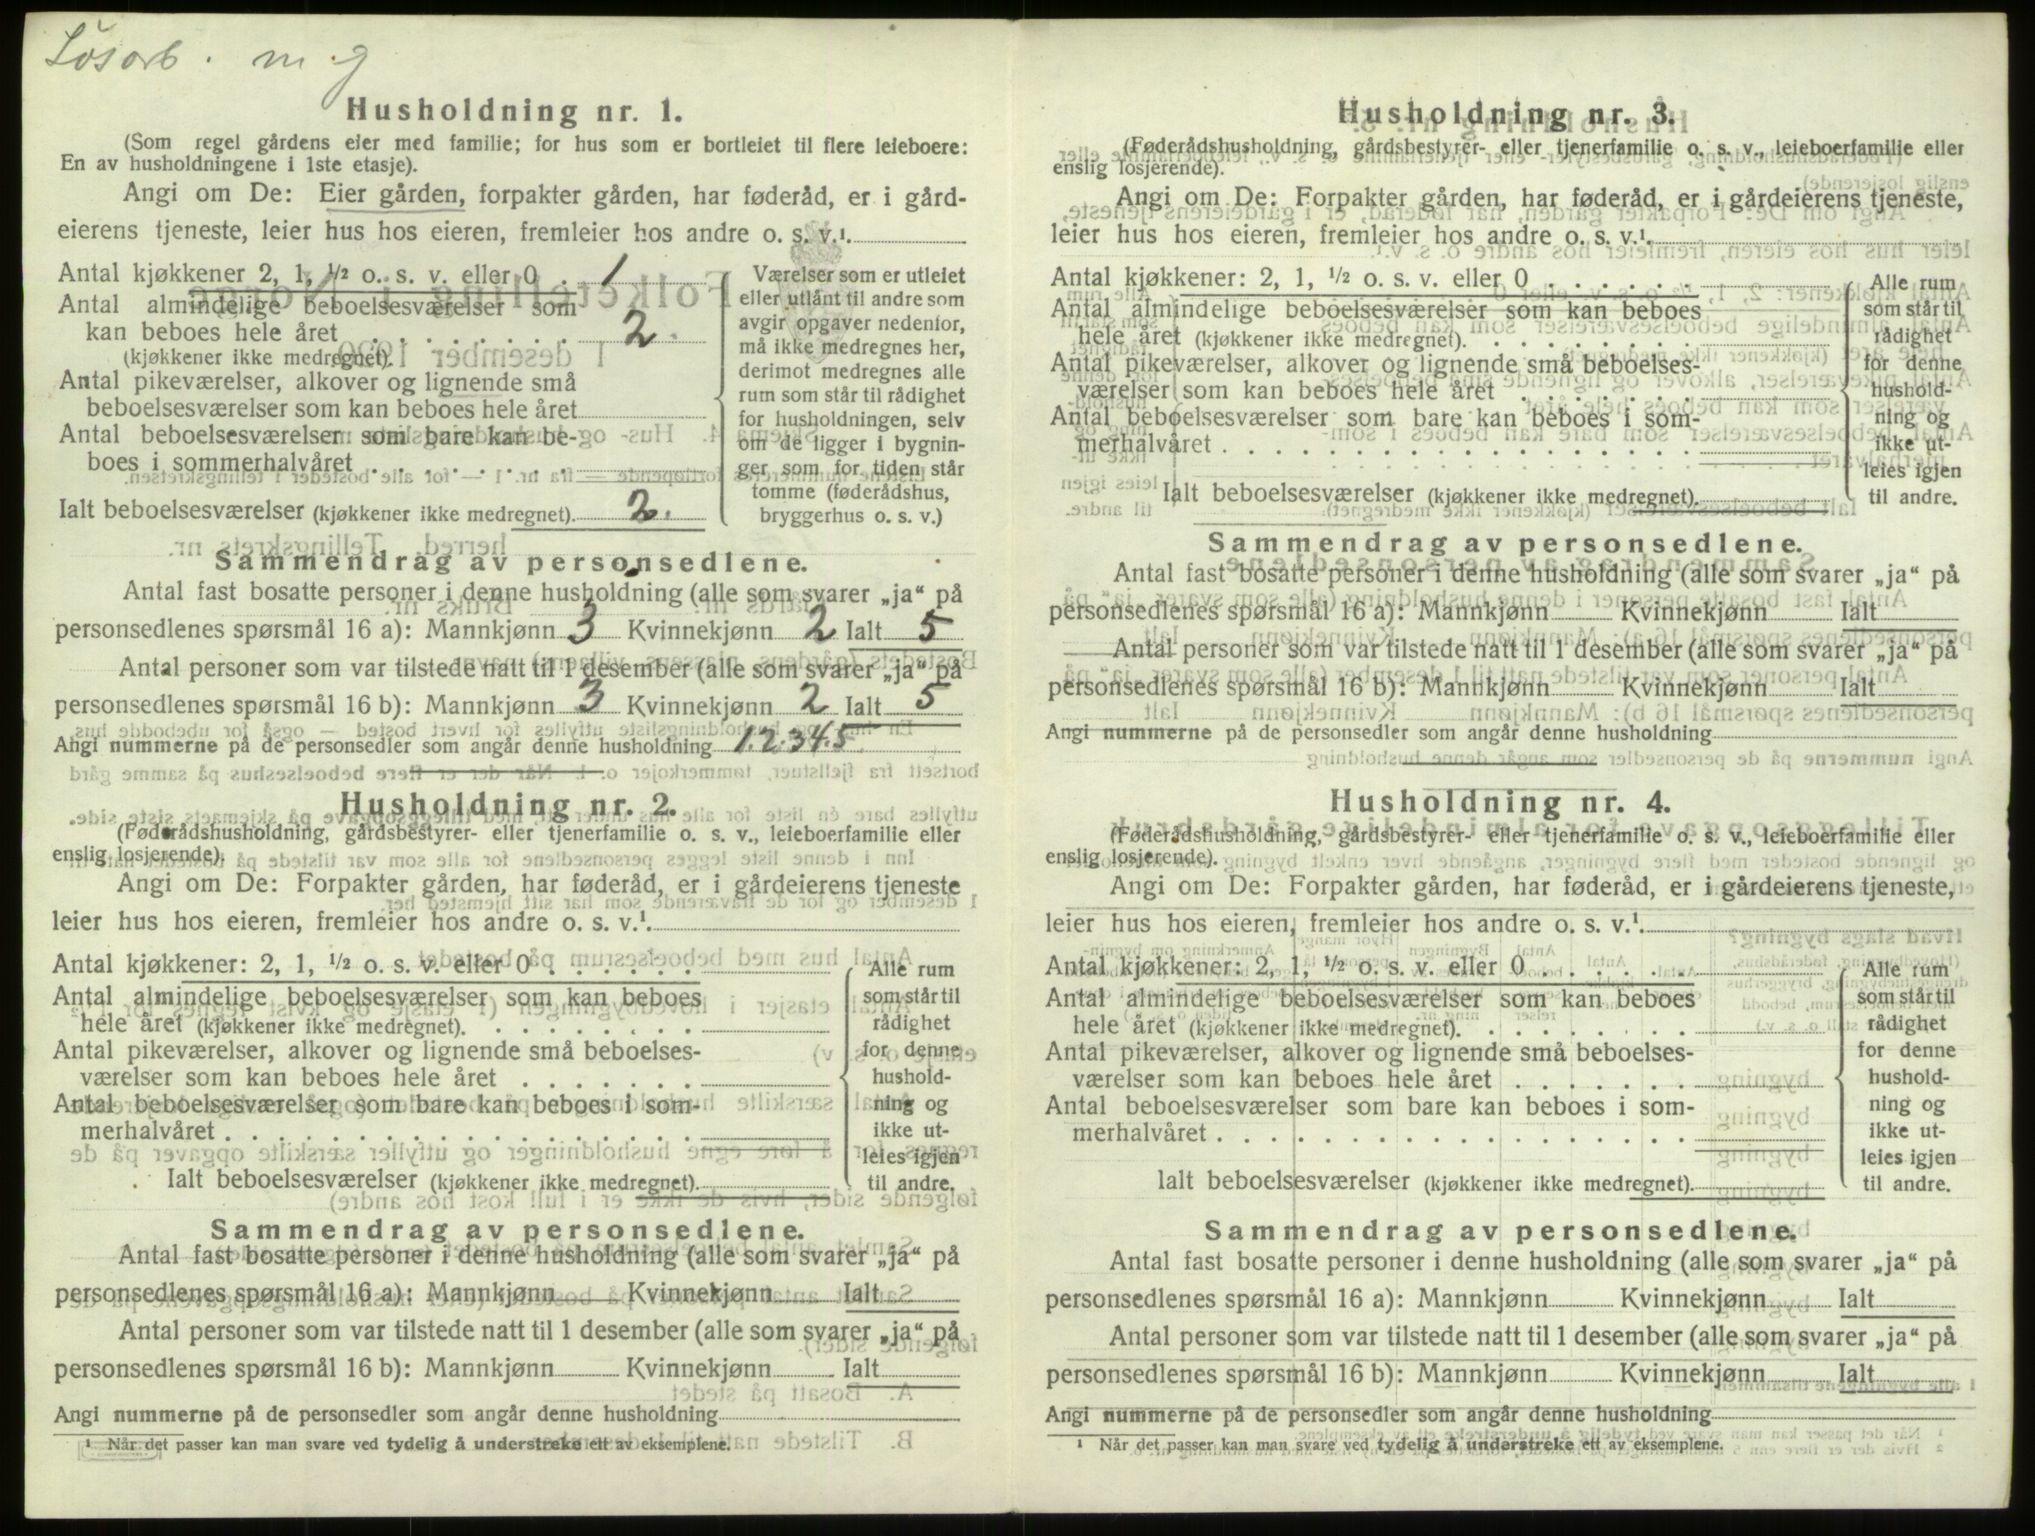 Løsarb. m. g
Husholdning nr. 1.
(Som regel gårdens eier med familie; for hus som er bortleiet til flere leieboere:
En av husholdningene i 1ste etasje).
Angi om De: Eier gården, forpakter gården, har føderåd, er i gård-
eierens tjeneste, leier hus hos eieren, fremleier hos andre o. s. v.¹.
Antal kjøkkener 2, 1, ½ o. s. v. eller 0 . 1
Antal almindelige beboelsesværelser som
kan beboes hele året . . . . . . . . 2.
(kjøkkener ikke medregnet).
Antal pikeværelser, alkover og lignende små
beboelsesværelser som kan beboes hele året
Antal beboelsesværelser som bare kan be-
boes i sommerhalvåret . . . . . . . .
Ialt beboelsesværelser (kjøkkener ikke medregnet). 2.
Værelser som er utleiet
eller utlånt til andre som
avgir opgaver nedenfor,
må ikke medregnes her,
derimot medregnes alle
rum som står til rådighet
for husholdningen, selv
om de ligger i bygnin-
ger som for tiden står
tomme (føderådshus,
bryggerhus o. s. v.)
Sammendrag av personsedlene.
Antal fast bosatte personer i denne husholdning (alle som svarer „ja“ på
personsedlenes spørsmål 16 a): Mannkjønn 3 Kvinnekjønn 2 Ialt 5
Antal personer som var tilstede natt til 1 desember (alle som svarer „ja“ på
personsedlenes spørsmål 16 b): Mannkjønn 3 Kvinnekjønn 2 Ialt 5
Angi nummerne på de personsedler som angår denne husholdning 1.2.34.5
Husholdning nr. 2.
(Føderådshusholdning, gårdsbestyrer- eller tjenerfamilie o. s. v., leieboerfamilie eller
enslig losjerende).
Angi om De: Forpakter gården, har føderåd, er i gårdeierens tjeneste
leier hus hos eieren, fremleier hos andre o. s. v.¹.
Antal kjøkkener: 2, 1, ½ o. s. v. eller 0 . . . . . .
Antal almindelige beboelsesværelser som kan beboes
hele året (kjøkkener ikke medregnet). . . . . . . . .
Antal pikeværelser, alkover og lignende små beboelses-
værelser som kan beboes hele året . . . . . . .
Antal beboelsesværelser som bare kan beboes i som-
merhalvåret . . . . . . . . . . . . . . . . . .
Ialt beboelsesværelser (kjøkkener ikke medregnet).
Alle rum
som står til
rådighet
for denne
hushold-
ning og
ikke ut-
leies igjen
til andre.
Sammendrag av personsedlene.
Antal fast bosatte personer i denne husholdning (alle som svarer „ja“ på
personsedlenes spørsmål 16 a): Mannkjønn Kvinnekjønn Ialt
Antal personer som var tilstede natt til 1 desember (alle som svarer „ja“ på
personsedlenes spørsmål 16 b): Mannkjønn Kvinnekjønn Ialt
Angi nummerne på de personsedler som angår denne husholdning
¹ Når det passer kan man svare ved tydelig å understreke ett av eksemplene.
Husholdning nr. 3.
(Føderådshusholdning, gårdsbestyrer- eller tjenerfamilie o. s. v., leieboerfamilie eller
enslig losjerende).
Angi om De: Forpakter gården, har føderåd, er i gårdeierens tjeneste,
leier hus hos eieren, fremleier hos andre o. s. v.¹.
Antal kjøkkener: 2, 1, ½ o. s. v. eller 0 . . . . . .
Antal almindelige beboelsesværelser som kan beboes
hele året (kjøkkener ikke medregnet). . . . . . . . .
Antal pikeværelser, alkover og lignende små beboelses-
værelser som kan beboes hele året . . . . . . .
Antal beboelsesværelser som bare kan beboes i som-
merhalvåret . . . . . . . . . . . . . . . . . .
Ialt beboelsesværelser (kjøkkener ikke medregnet).
Alle rum
som står til
rådighet
for denne
hushold-
ning og
ikke ut-
leies igjen
til andre.
Sammendrag av personsedlene.
Antal fast bosatte personer i denne husholdning (alle som svarer „ja“ på
personsedlenes spørsmål 16 a): Mannkjønn Kvinnekjønn Ialt
Antal personer som var tilstede natt til 1 desember (alle som svarer „ja“ på
personsedlenes spørsmål 16 b): Mannkjønn Kvinnekjønn Ialt
Angi nummerne på de personsedler som angår denne husholdning
Husholdning nr. 4.
(Føderådshusholdning, gårdsbestyrer- eller tjenerfamilie o. s. v., leieboerfamilie eller
enslig losjerende).
Angi om De: Forpakter gården, har føderåd, er i gårdeierens tjeneste,
leier hus hos eieren, fremleier hos andre o. s. v.¹.
Antal kjøkkener: 2, 1, ½ o. s. v. eller 0 . . . . . .
Antal almindelige beboelsesværelser som kan beboes
hele året (kjøkkener ikke medregnet). . . . . . . . .
Antal pikeværelser, alkover og lignende små beboelses-
værelser som kan beboes hele året . . . . . . .
Antal beboelsesværelser som bare kan beboes i som-
merhalvåret . . . . . . . . . . . . . . . . . .
Ialt beboelsesværelser (kjøkkener ikke medregnet).
Alle rum
som står til
rådighet
for denne
hushold-
ning og
ikke ut-
leies igjen
til andre.
Sammendrag av personsedlene.
Antal fast bosatte personer i denne husholdning (alle som svarer „ja“ på
personsedlenes spørsmål 16 a): Mannkjønn Kvinnekjønn Ialt
Antal personer som var tilstede natt til 1 desember (alle som svarer „ja“ på
personsedlenes spørsmål 16 b): Mannkjønn Kvinnekjønn Ialt
Angi nummerne på de personsedler som angår denne husholdning
¹ Når det passer kan man svare ved tydelig å understreke ett av eksemplene.